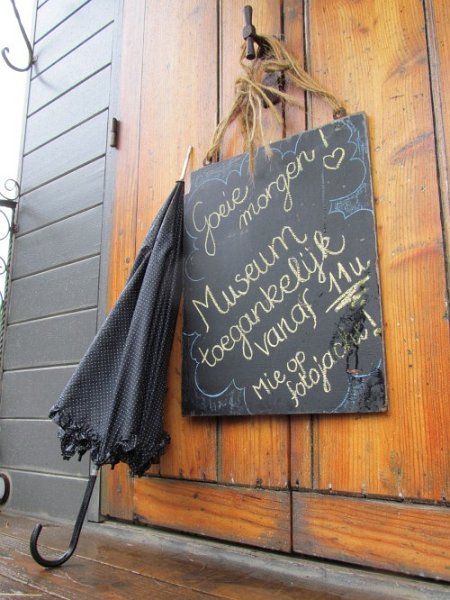 Goeie
morgen!
Museum
toegankelijk
vanaf 11u
Mie op
fotojacht!